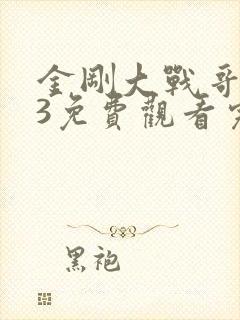 金剛大戰哥
3免費觀看完
黑袍